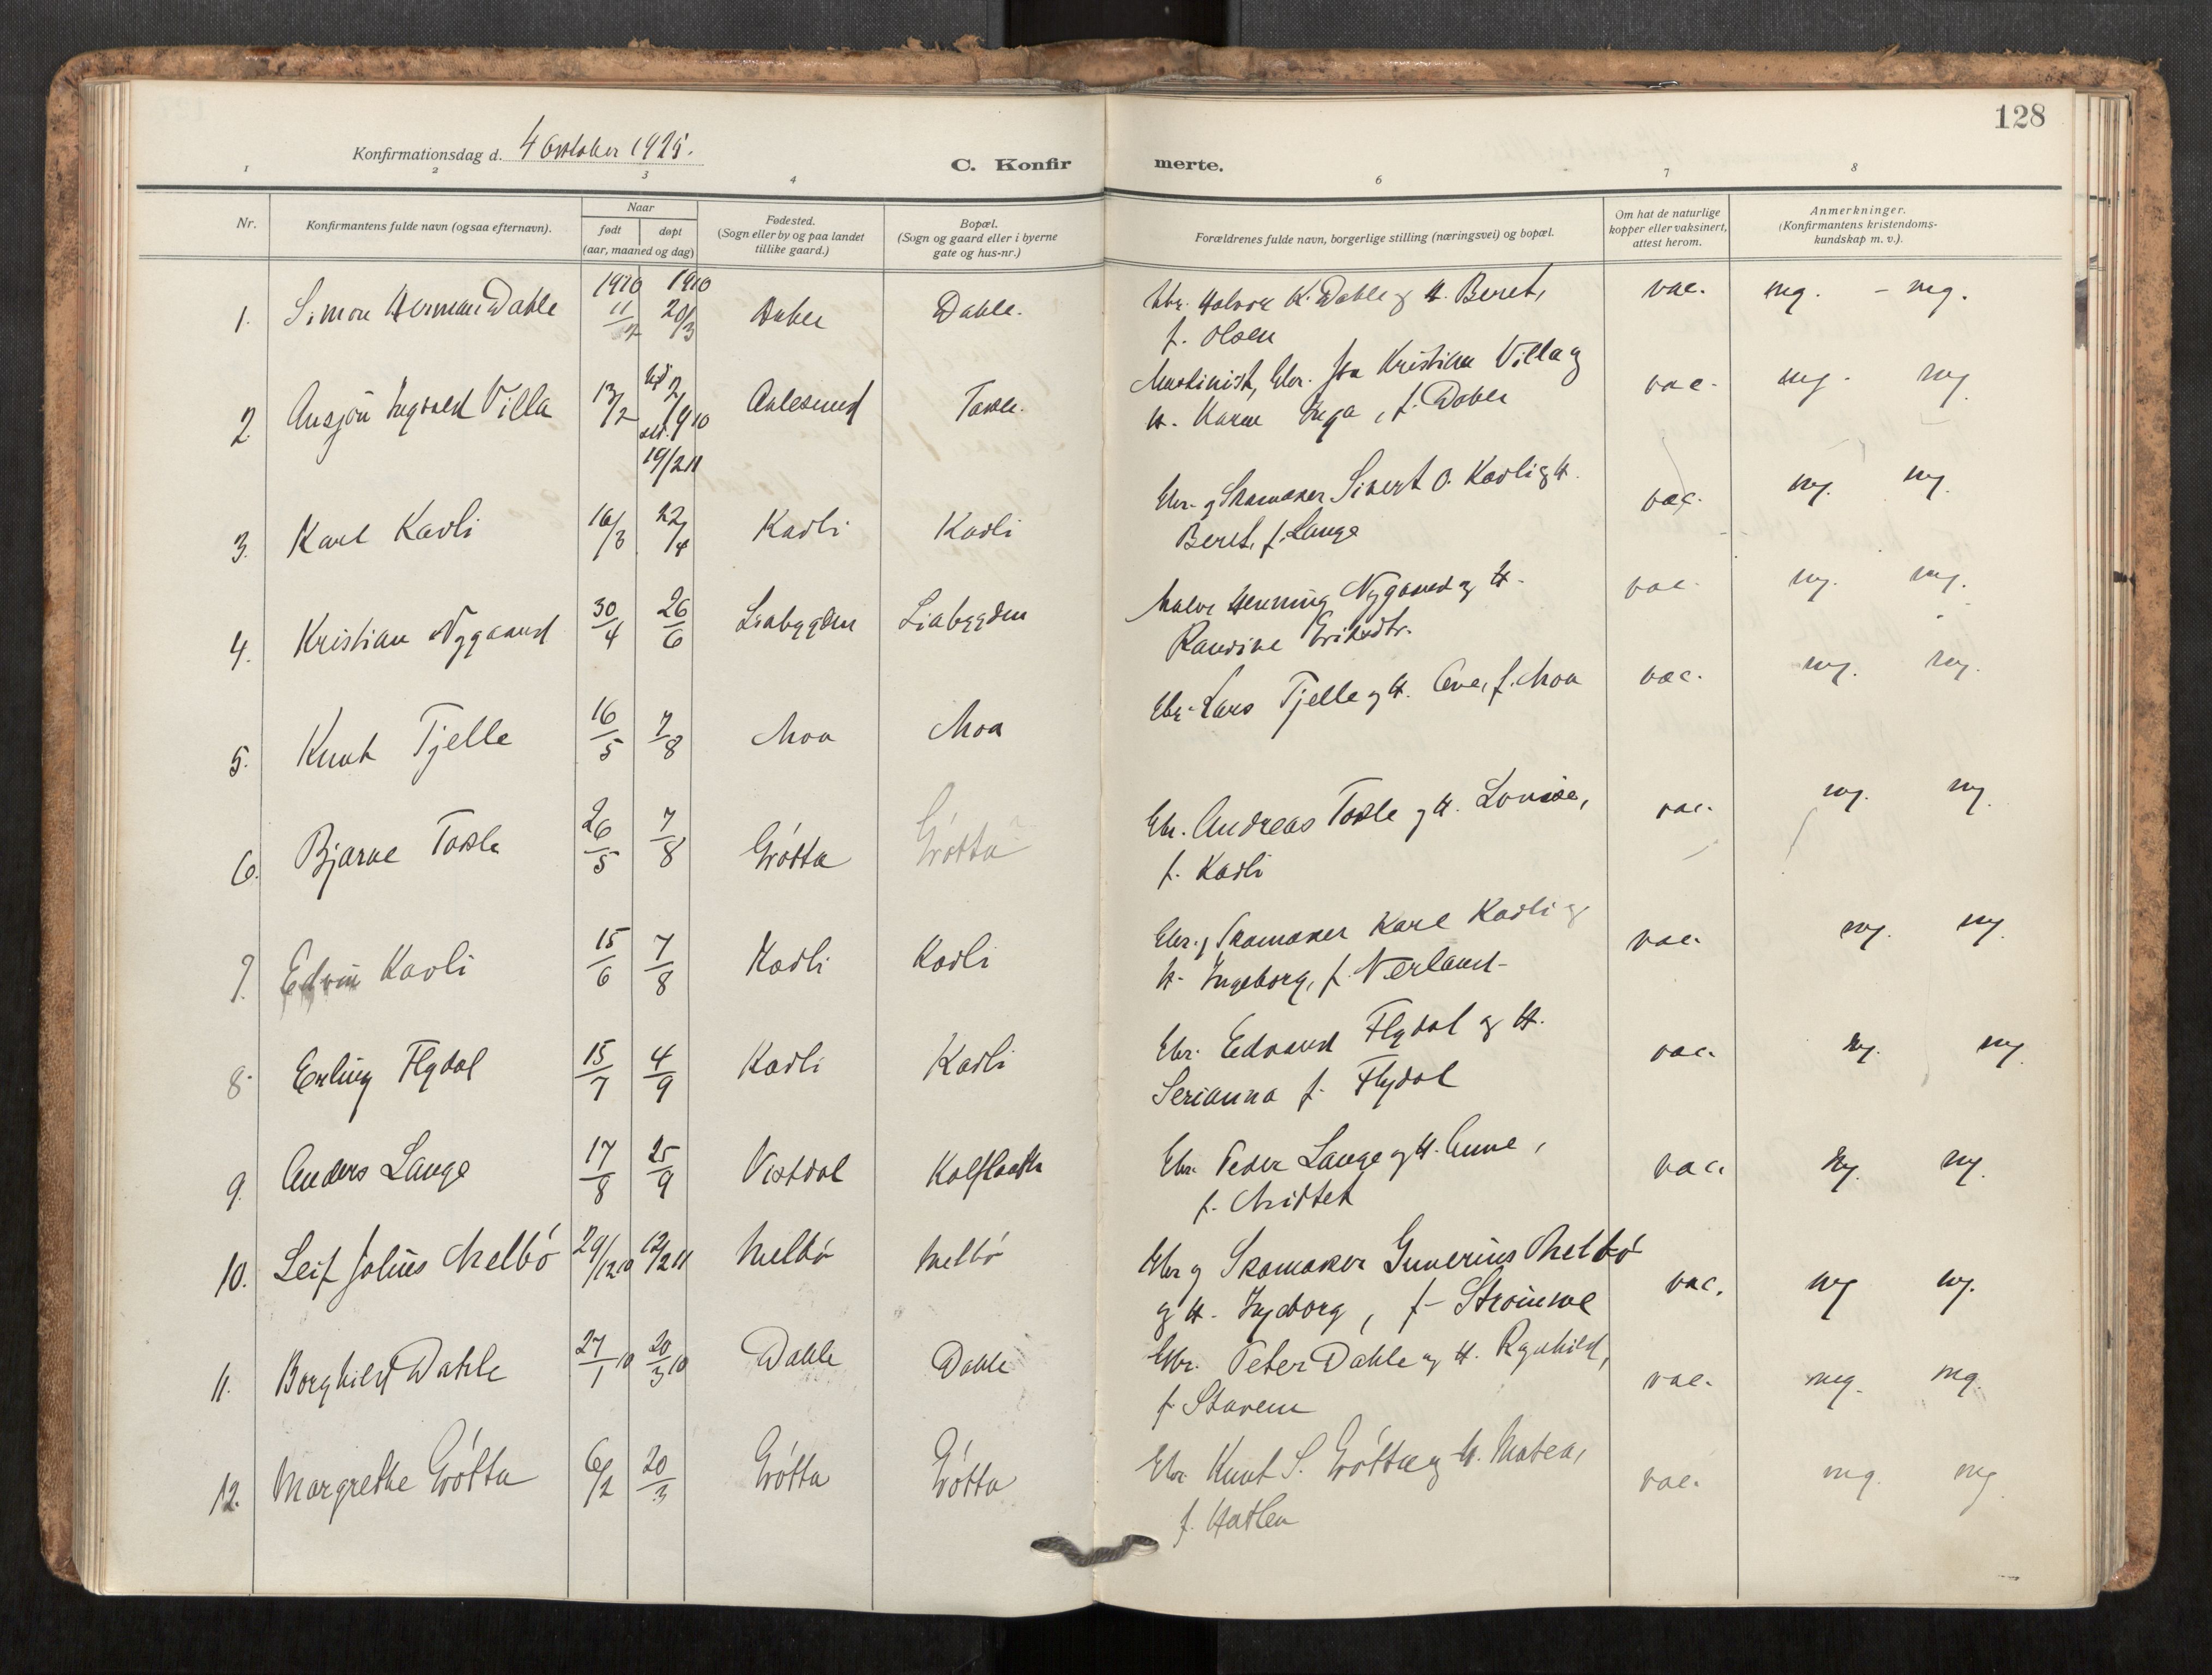 128
Konfirmationsdag d. 4 Oktober 1925.
C. Konfirmerte.
1 2 3 4 6 7 8
Nr.
Konfirmantens fulde navn (ogsaa efternavn).
Naar
født døpt
(aar, maaned og dag)
Fødested.
(Sogn eller by og paa landet
tillike gaard.)
Bopæl.
(Sogn og gaard eller i byerne
gate og hus-nr.)
Forældrenes fulde navn, borgerlige stilling (næringsvei) og bopæl.
Om hat de naturlige
kopper eller vaksinert,
attest herom.
Anmerkninger.
(Konfirmantens kristendoms-
kundskap m. v.).
1910 1910
1. Simon Herman Dahle 11/2 20/3 Dahle Dahle. Gbr. Halvor K. Dahle og H. Beret, vac. mg. - mg.
f. Olsen
2. Ingvald Villa 13/2 2/ 1910 Aalesund Toven. Maskinist, Gbr. Kristian Villa og vac. mg. mg
19/2 11 H. Karen Inga, f. Dahle
3. Karl Kavli 16/3 22/4 Kavli Kavli Gbr. og Skomaker Sivert O. Kavli og H. vac. mg. mg.
Beret, f. Lange
4. Kristian Nygaard 30/4 26/6 Liabygden Liabygden Maler Henning Nygaard og H. vac. mg. mg.
Randine Eriksdtr.
5. Knut Tjelle 16/5 7/8 Moa Moa Gbr. Lars Tjelle og H. Ane, f. Moa vac. mg. mg.
6. Bjarne Toven 26/5 7/8 Grótta Grótta Gbr. Andreas Toven og H. Lovise, vac. mg. mg.
f. Kavli
7. Edvin Kavli 15/6 7/8 Kavli Kavli Gbr. og Skomaker Karl Kavli og vac. mg. mg.
H. Ingeborg, f. Nerland
8. Erling Flydal 15/7 4/9 Kavli Kavli Gbr. Edvard Flydal og H. vac. mg. mg.
Serianna f. Flydal
9. Anders Lange 17/8 25/9 Vistdal Gbr. Peder Lange og H. Anne, vac. mg. mg.
f. Midtet
10. Leif Julius Melbó 29/12 10 12/2 11 Melbó Melbó Gbr og Skomaker Gunerius Melbó vac. mg mg.
og H. Ingeborg, f.
11. Borghild Dahle 27/1 10 20/3 10 Dahle Dahle Gbr. Peter Dahle og H. Ragnhild, vac. mg. mg.
f. Stavem
12. Margrethe Grótta 6/2 20/3 Grótta Grótta Gbr Knut S. Grótta og H. Matea, vac. mg. mg
f. Hatlen